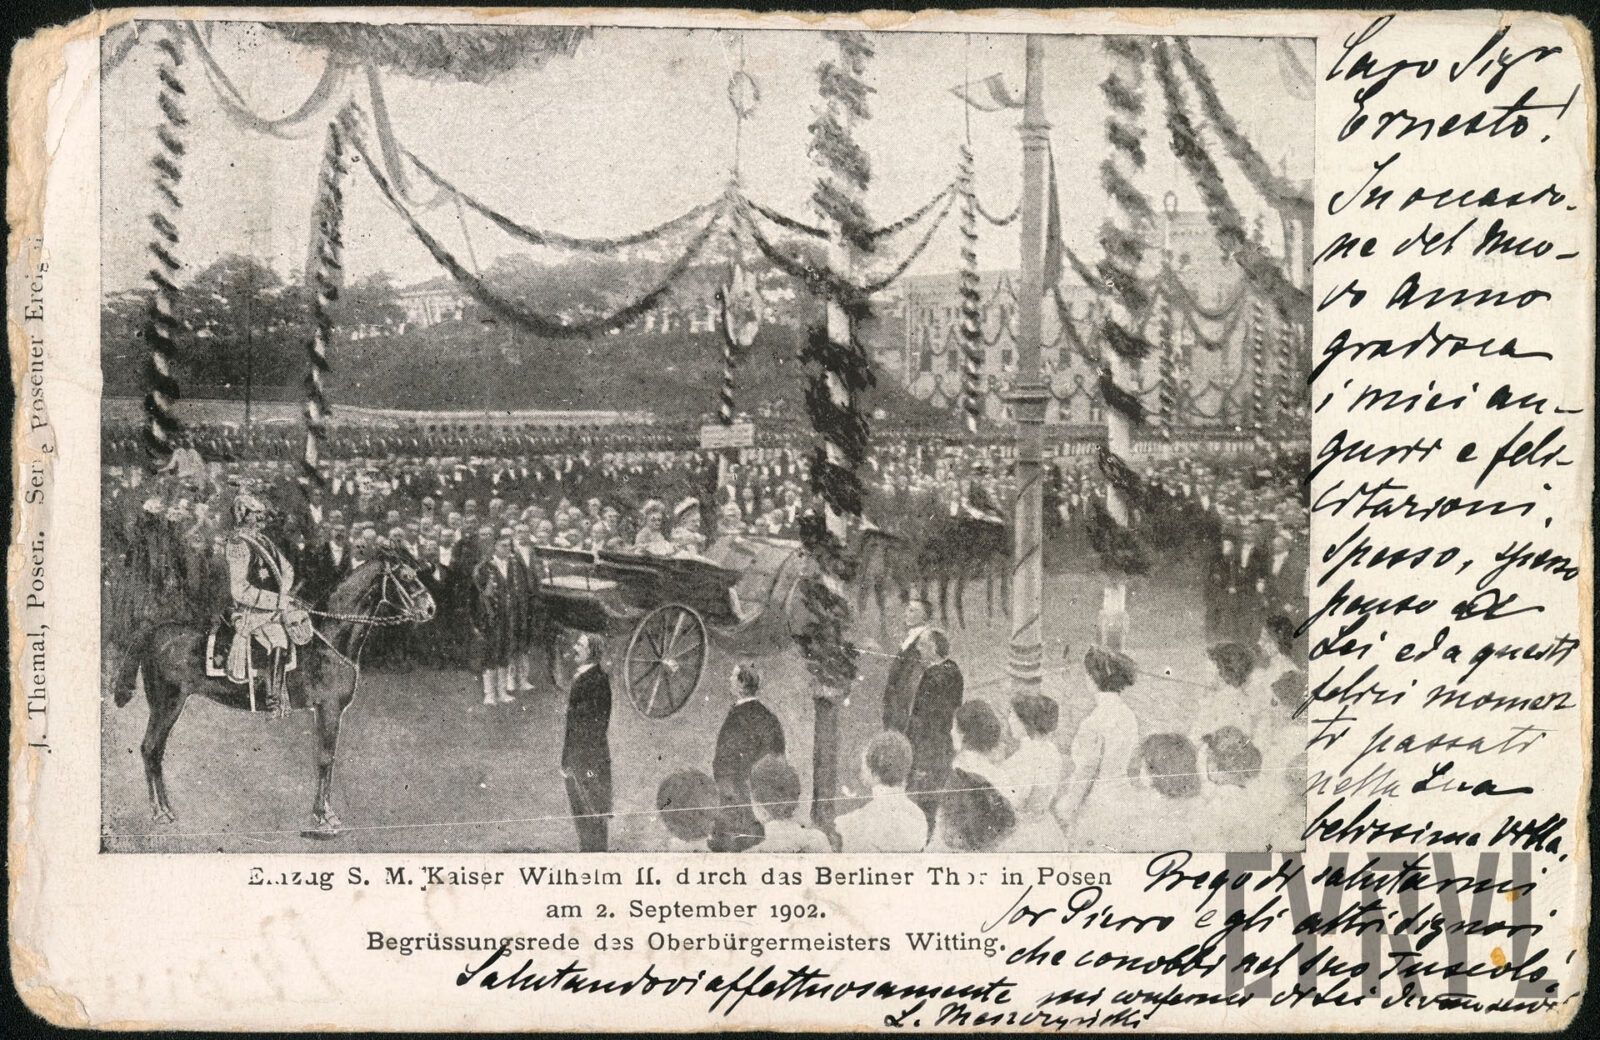 J. Themal, Posen. Serie Posener Ereig
Einzug S. M. Kaiser Wilhelm II. durch das Berliner Thor in Posen
am 2. September 1902.
Begrüssungsrede des Oberbürgermeisters Witting.
Caro Sigr
Ernesto!
In occasio-
ne del Nuo-
vo Anno
gradisca
i miei au-
gurii e feli-
citazioni.
Spesso, spesso
penso a
Lei ed a questi
felici momen
ti passati
nella Sua
belissima Villa.
Prego di salutarmi
Sor Pierro e gli altri signori
che conobbi nel Suo Tusculo!
Salutandovi affettuosamente mi confermo di Lei
L.
CYRYL